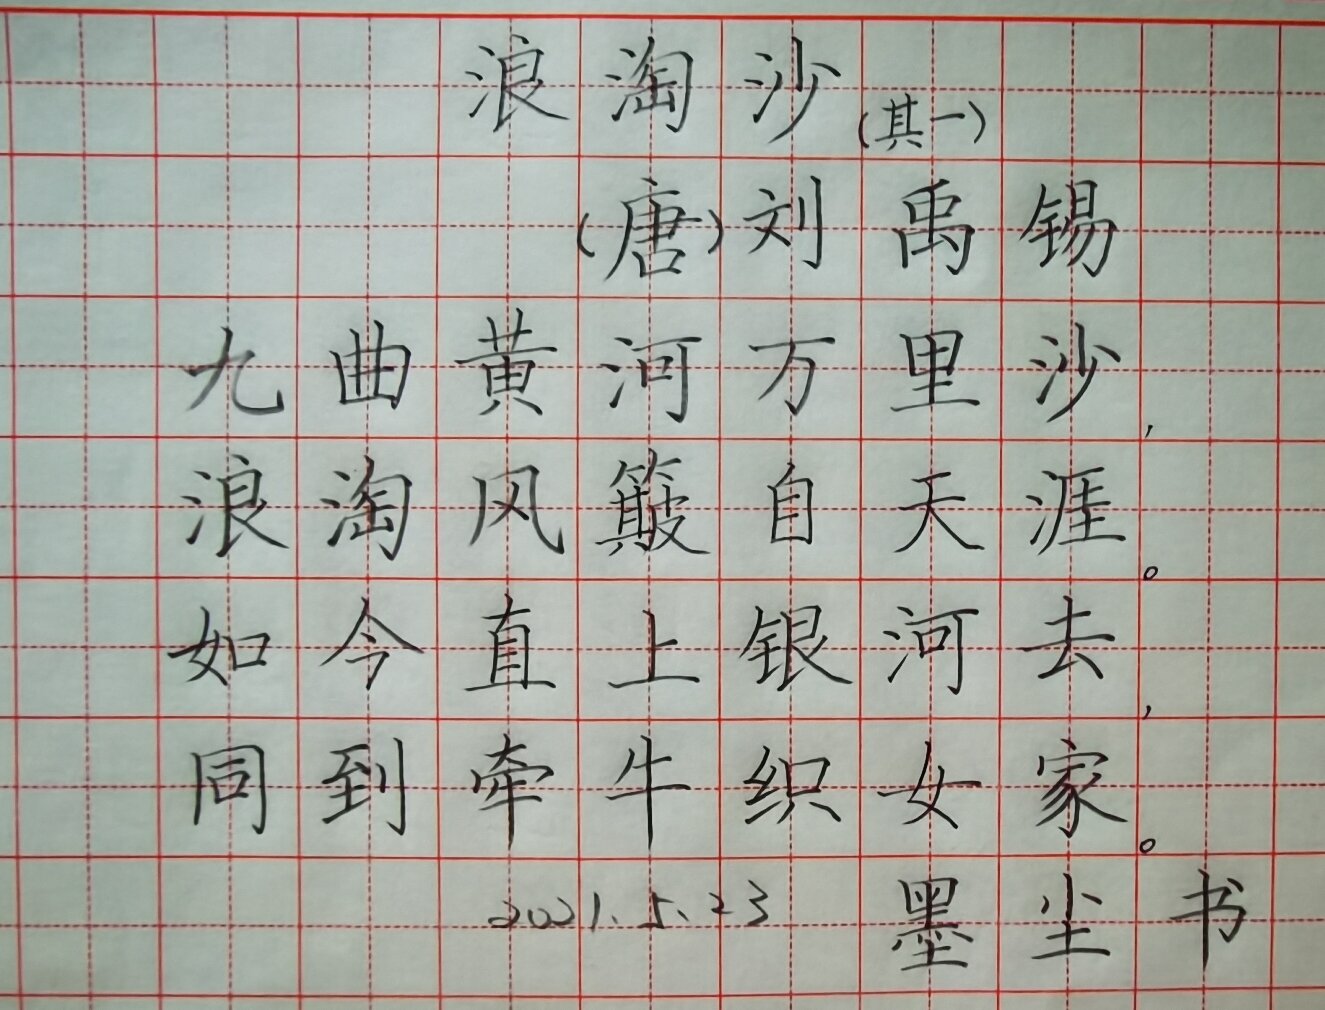 浪淘沙(其一)
(唐)刘禹锡
九曲黄河万里沙,
浪淘风簸自天涯。
如今直上银河去,
同到牵牛织女家。
2021.5.23 墨尘书